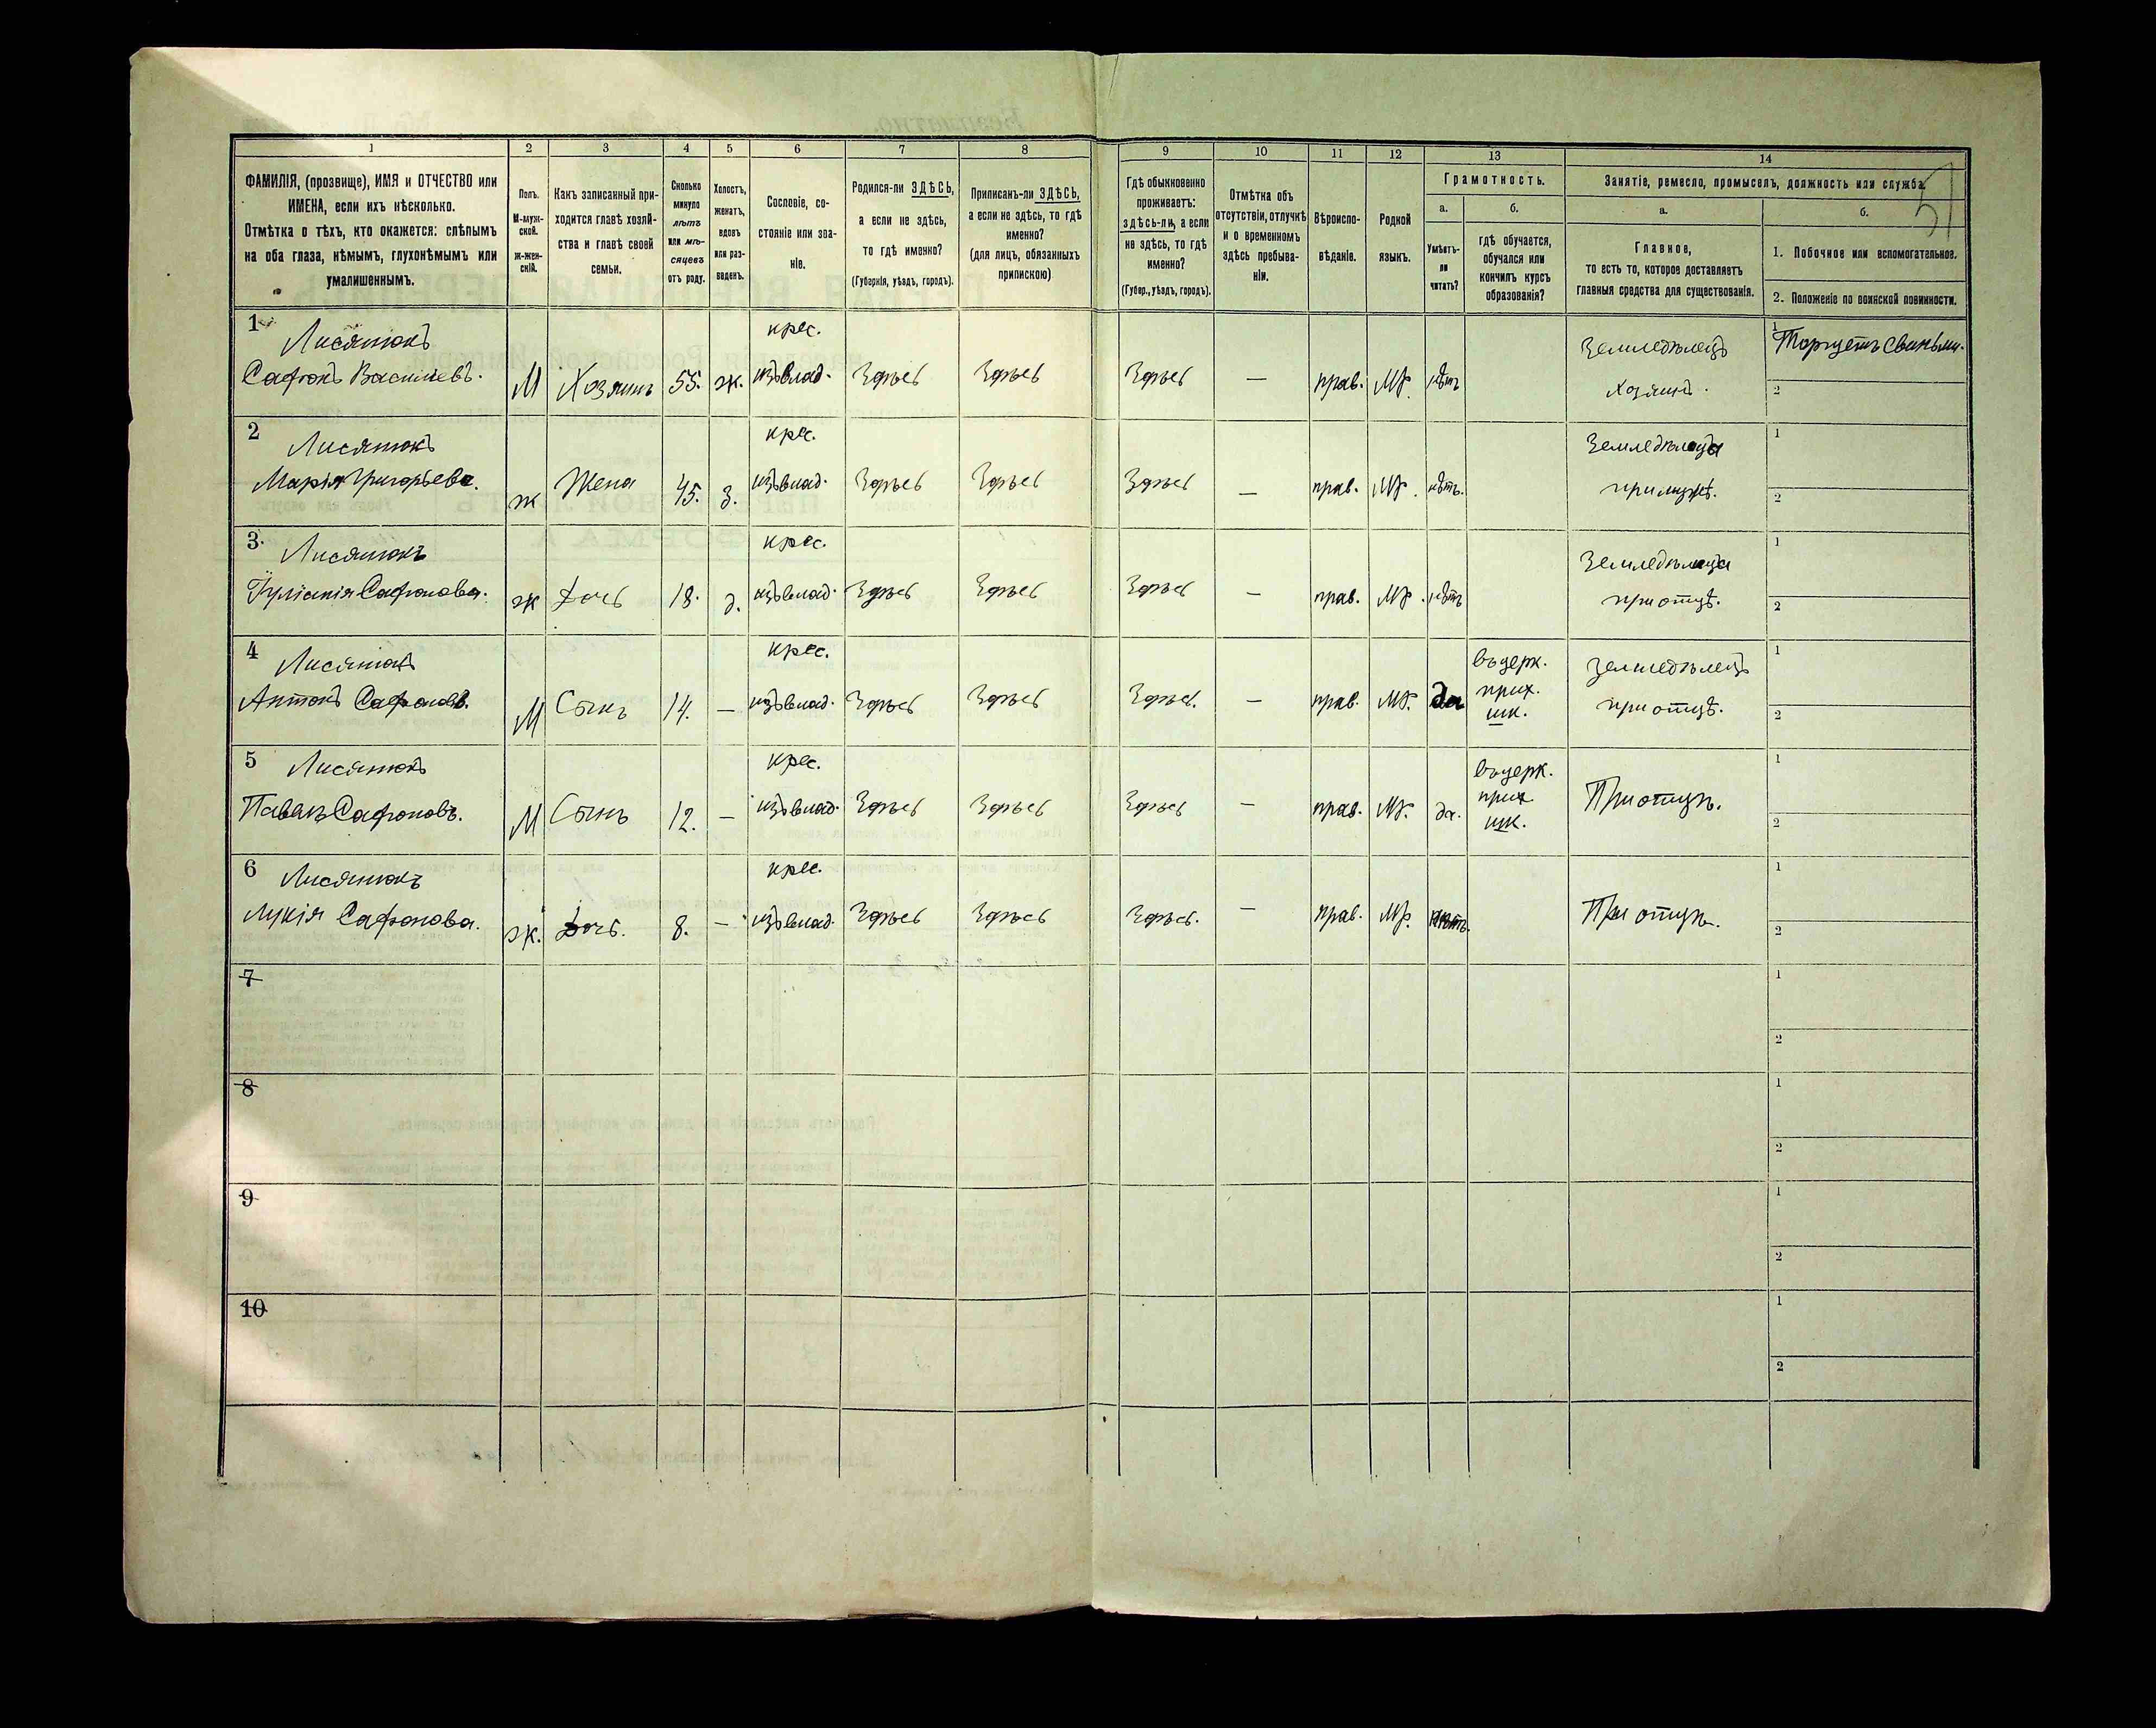 51
1 2 3 4 5 6 7 8 9 10 11 12 13 14
ФАМИЛІЯ, (прозвище), ИМЯ и ОТЧЕСТВО или
ИМЕНА, если ихъ нѣсколько.
Отмѣтка о тѣхъ, кто окажется: слѣпымъ
на оба глаза, нѣмымъ, глухонѣмымъ или
умалишеннымъ.
Полъ.
М-муж-
ской.
ж-жен-
скій.
Какъ записанный при-
ходится главѣ хозяй-
ства и главѣ своей
семьи.
Сколько
минуло
лѣтъ
или мѣ-
сяцевъ
отъ роду.
Холостъ,
женатъ,
вдовъ
или раз-
веденъ.
Сословіе, со-
стояніе или зва-
ніе.
Родился-ли ЗДѢСЬ,
а если не здѣсь,
то гдѣ именно?
(Губернія, уѣздъ, городъ).
Приписанъ-ли ЗДѢСЬ,
а если не здѣсь, то гдѣ
именно?
(для лицъ, обязанныхъ
припискою)
Гдѣ обыкновенно
проживаетъ:
здѣсь-ли, а если
не здѣсь, то гдѣ
именно?
(Губер., уѣздъ, городъ).
Отмѣтка объ
отсутствіи, отлучкѣ
и о временномъ
здѣсь пребыва-
ніи.
Вѣроиспо-
вѣданіе.
Родной
языкъ.
Грамотность.
а.
Умѣетъ-
ли
читать?
б.
гдѣ обучается,
обучался или
кончилъ курсъ
образованія?
Занятіе, ремесло, промыселъ, должность или служба.
а.
Главное,
то есть то, которое доставляетъ
главныя средства для существованія.
б.
1. Побочное или вспомогательное.
2. Положеніе по воинской повинности.
1 Лисятокъ крес. Земледѣлецъ 1 Торгуетъ свиньми.
Сафонъ Васильевъ. М Хозяинъ 55. ж. изъ влад. Здѣсь Здѣсь Здѣсь — прав. Мр. нѣтъ хозяинъ. 2
2 Лисятокъ крес. Земледѣлица 1
Марія Григорьева. ж Жена 45. з. изъ влад. Здѣсь Здѣсь Здѣсь — прав. Мр. нѣтъ. при мужѣ. 2
3. Лисятокъ крес. Земледѣлица 1
Іуліанія Сафонова. ж Дочь 18. д. изъ влад. Здѣсь Здѣсь Здѣсь — прав. Мр. нѣтъ при отцѣ. 2
4 Лисятокъ крес. въ церк. земледѣлецъ 1
Антонъ Сафоновъ. М Сынъ 14. — изъ влад. Здѣсь Здѣсь Здѣсь. — прав. Мр. да прих. шк. при отцѣ. 2
5 Лисятокъ крес. въ церк. 1
Павелъ Сафоновъ. М Сынъ 12. — изъ влад. Здѣсь Здѣсь Здѣсь — прав. Мр. да. прих. шк. При отцѣ. 2
6 Лисятокъ крес. 1
Лукія Сафонова. ж. Дочь. 8. — изъ влад. Здѣсь Здѣсь Здѣсь. — прав. Мр. нѣтъ. При отцѣ. 2
7 1
2
8 1
2
9 1
2
10 1
2